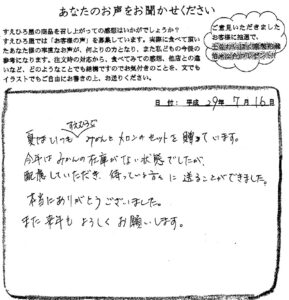 あなたのお声をお聞かせください
すえひろ屋の商品を召し上がっての感想はいかがでしょうか?
すえひろ屋では「お客様の声」を募集しています。実際に食べて頂い
たあなた様の率直なお声が、何よりの力となり、また私どもの今後の
参考になります。注文時の対応から、食べてみての感想、他店との違
いなど、どのようなことでも結構ですのでお気付きのことを、文でも
イラストでもご自由にお書きの上、お送りください。
ご意見いただきました
お客様に抽選で、
日付:平成 29年 7月 16日
すえひろ
夏はいつも みかんとメロンのセットを贈っています。
今年はみかんの在庫がない状態でしたが、
配慮していただき、待っている方々に送ることができました。
本当にありがとうございました。
また来年もよろしくお願いします。